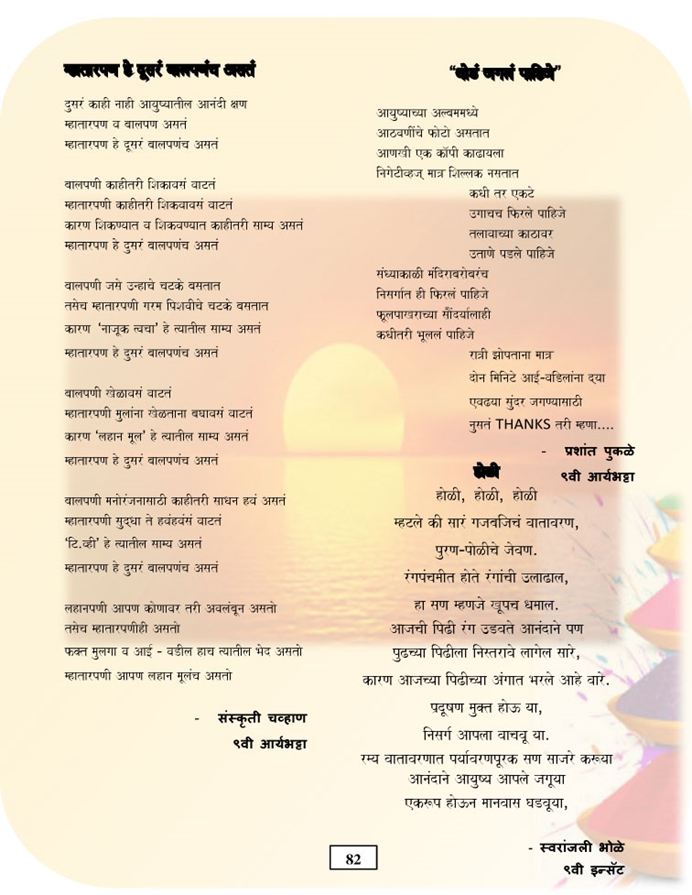 म्हातारपण हे दूसरं बालपणंच असतं
दुसरं काही नाही आयुष्यातील आनंदी क्षण
म्हातारपण व बालपण असतं
म्हातारपण हे दूसरं बालपणंच असतं
बालपणी काहीतरी शिकावसं वाटतं
म्हातारपणी काहीतरी शिकवावसं वाटतं
कारण शिकण्यात व शिकवण्यात काहीतरी साम्य असतं
म्हातारपण हे दुसरं बालपणंच असतं
बालपणी जसे उन्हाचे चटके बसतात
तसेच म्हातारपणी गरम पिशवीचे चटके बसतात
कारण ‘नाजूक त्वचा’ हे त्यातील साम्य असतं
म्हातारपण हे दुसरं बालपणंच असतं
बालपणी खेळावसं वाटतं
म्हातारपणी मुलांना खेळताना बघावसं वाटतं
कारण ‘लहान मूल’ हे त्यातील साम्य असतं
म्हातारपण हे दुसरं बालपणंच असतं
बालपणी मनोरंजनासाठी काहीतरी साधन हवं असतं
म्हातारपणी सुद्धा ते हवंहवंसं वाटतं
‘टि.व्ही’ हे त्यातील साम्य असतं
म्हातारपण हे दुसरं बालपणंच असतं
लहानपणी आपण कोणावर तरी अवलंबून असतो
तसेच म्हातारपणीही असतो
फक्त मुलगा व आई - वडील हाच त्यातील भेद असतो
म्हातारपणी आपण लहान मूलंच असतो
- संस्कृती चव्हाण
९वी आर्यभट्टा
“थोडं जगलं पाहिजे”
आयुष्याच्या अल्बममध्ये
आठवणींचे फोटो असतात
आणखी एक कॉपी काढायला
निगेटीव्हज् मात्र शिल्लक नसतात
कधी तर एकटे
उगाचच फिरले पाहिजे
तलावाच्या काठावर
उताणे पडले पाहिजे
संध्याकाळी मंदिराबरोबरंच
निसर्गात ही फिरलं पाहिजे
फूलपाखराच्या सौंदर्यालाही
कधीतरी भूललं पाहिजे
रात्री झोपताना मात्र
दोन मिनिटे आई-वडिलांना द्या
एवढ्या सुंदर जगण्यासाठी
नुसतं THANKS तरी म्हणा....
- प्रशांत पुकळे
९वी आर्यभट्टा
होळी
होळी, होळी, होळी
म्हटले की सारं गजवजिचं वातावरण,
पुरण-पोळीचे जेवण.
रंगपंचमीत होते रंगांची उलाढाल,
हा सण म्हणजे खूपच धमाल.
आजची पिढी रंग उडवते आनंदाने पण
पुढच्या पिढीला निस्तरावे लागेल सारे,
कारण आजच्या पिढीच्या अंगात भरले आहे वारे.
प्रदूषण मुक्त होऊ या,
निसर्ग आपला वाचवू या.
रम्य वातावरणात पर्यावरणपूरक सण साजरे करूया
आनंदाने आयुष्य आपले जगूया
एकरूप होऊन मानवास घडवूया,
- स्वरांजली भोळे
९वी इन्सॅट
82